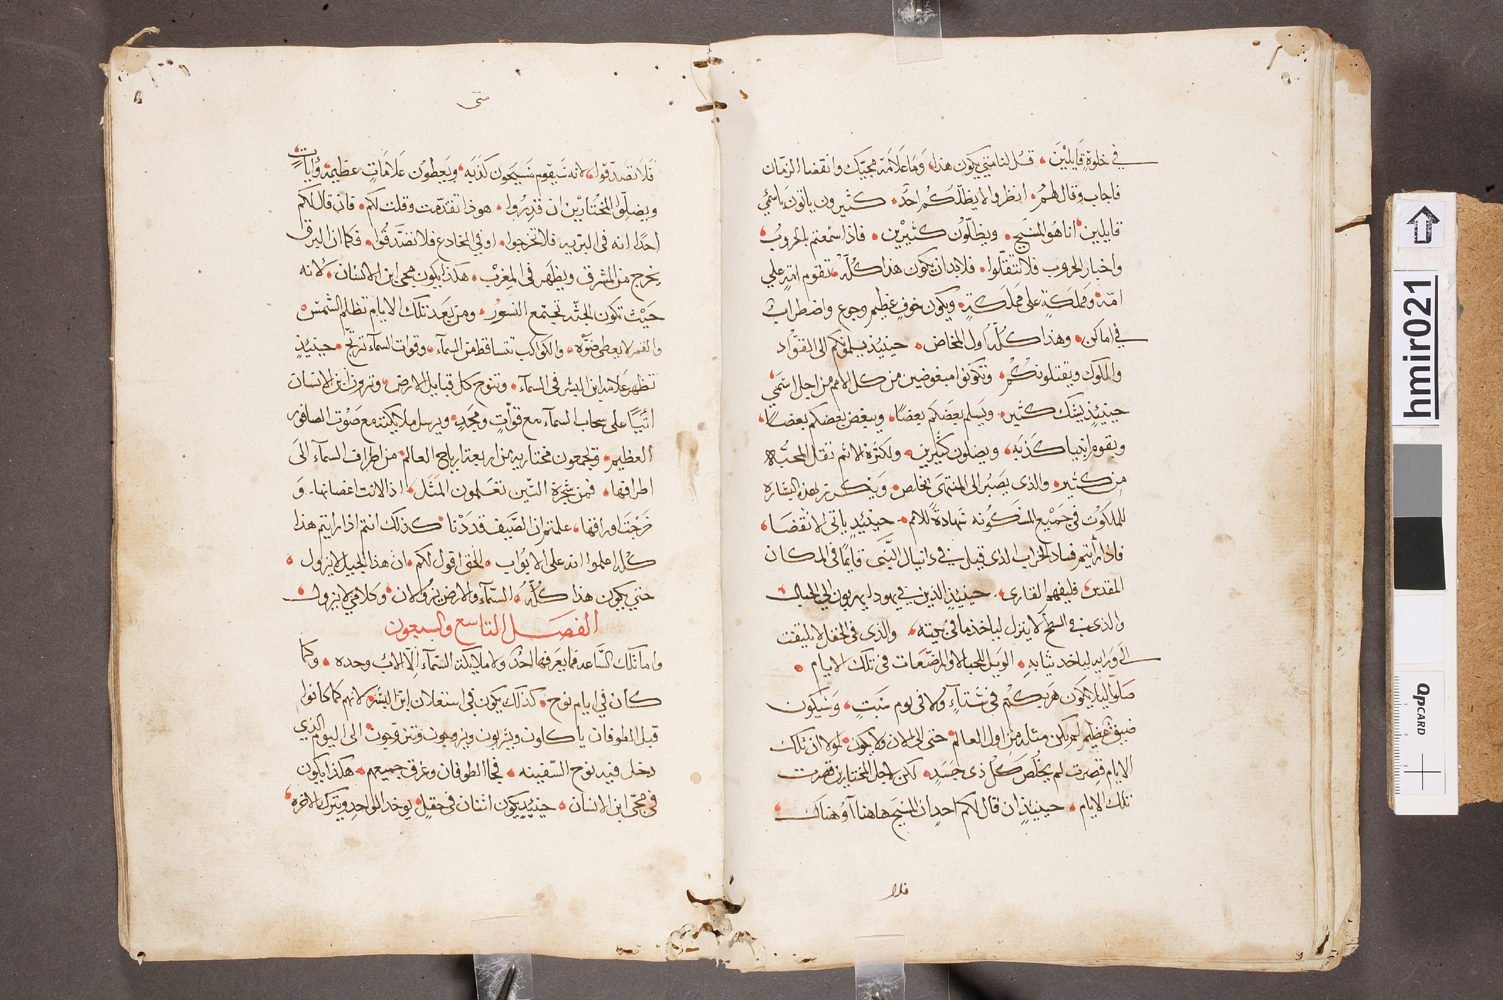 في خلوة قايلين قل لنا متي يكون هذا وما علامة مجيك وانقضا الزمان
فاجاب وقال لهم انظروا لا يظلكم احد كثيرون ياتون باسمي
قايلين انا هو المسيح ويظلون كثيرين فاذا سمعتم الحروب
واخبار الحروب فلا تتقلقلوا فلا بد ان يكون هذا كله تقوم امة علي
امة ومملكة على مملكة ويكون خوف عظيم وجوع واضطراب
في اماكن وهذا كله اول المخاض حينيذ يسلمونكم الى القواد
والملوك ويقتلونكم وتكونوا مبغوضين من كل الامم من اجل اسمي
حينيذ يشك كثير ويسلم بعضكم بعضا ويبغض بعضكم بعضا
ويقوم انبيا كذبه ويضلون كثيرين ولكثرة الاثم تقل المحبه
من كثير والذي يصبر الى المنتهى يخلص ويكرز بهذه البشاره
الملكوت في جميع المسكونه شهادة للامم حينيذ ياتي الانقضا
فاذا رأيتم فساد الخراب الذي قيل في دانيال النبي قايما في المكان
المقدس فليفهم القاري حينيذ الذين في يهودا يهربون الى الجبال
والذي في السطح لا ينزل لياخذ ما في بيته والذي في الحقل لا يلتفت
الى ورايه لياخد ثيابه الويل للحبالا والمرضعات في تلك الايام
صلوا ليلا يكون هربكم في شتاء ولا في يوم سبت وسيكون
ضيق عظيم لم يكن مثله من اول العالم حتى الى الان ولا يكون لولا ان تلك
الايام قصرت لم يخلص كل ذي جسد لكن لاجل المختارين قصرت
تلك الايام حينيذ ان قال لكم احد ان المسيح هاهنا أو هناك
فلا
متى
فلا تصدقوا لانه سيقوم مسيحون كذبه ويعطون علامات عظيمة وأيات
ويضلوا المختارين ان قدروا هوذا تقدمت وقلت لكم فان قال لكم
احد انه في البريه فلا تخرجوا او في المخادع فلا تصدقوا فكما ان البرق
يخرج من المشرق ويظهر في المغرب هكذا يكون مجي ابن الانسان لانه
حيث تكون الجثه تجتمع النسور ومن بعد تلك الايام تظلم الشمس
والقمر لا يعطي ضوه والكواكب تتساقط من السمآء وقوات السمآء ترتج حينيذ
تظهر علامة ابن البشر في السمآء وتنوح كل قبايل الارض وترون ابن الانسان
اتيا على سحاب السمآء مع قوات ومجد ويرسل ملايكته مع صوت الصافور
العظيم وتجمعون مختاريه من اربعة ارياح العالم من اطراف السمآء الى
اطرافها فمن شجرة التين تعلمون المثل اذا لانت اغصانها و
خرجت اوراقها علمتم ان الصيف قد دنا كذلك انتم اذا رايتم هذا
كله اعلموا انه على الابواب الحق اقول لكم ان هذا الجيل لا يزول
حتي يكون هذا كله السمآء والارض يزولان وكلامي لا يزول
الفصل التاسع والسبعون
واما تلك الساعه فما يعرفها احد ولا ملايكة السمآء الا الاب وحده وكما
كان في ايام نوح كذلك يكون في استعلان ابن البشر لانهم كما كانوا
قبل الطوفان ياكلون ويشربون ويزوجون وتتزوجون الى اليوم الذي
دخل فيه نوح السفينه فجا الطوفان وغرق جميعهم هكذا يكون
في مجي ابن الانسان حينيذ يكون اثنان في حقل يوخد الواحد ويترك الاخره
hmir021
QPCARD